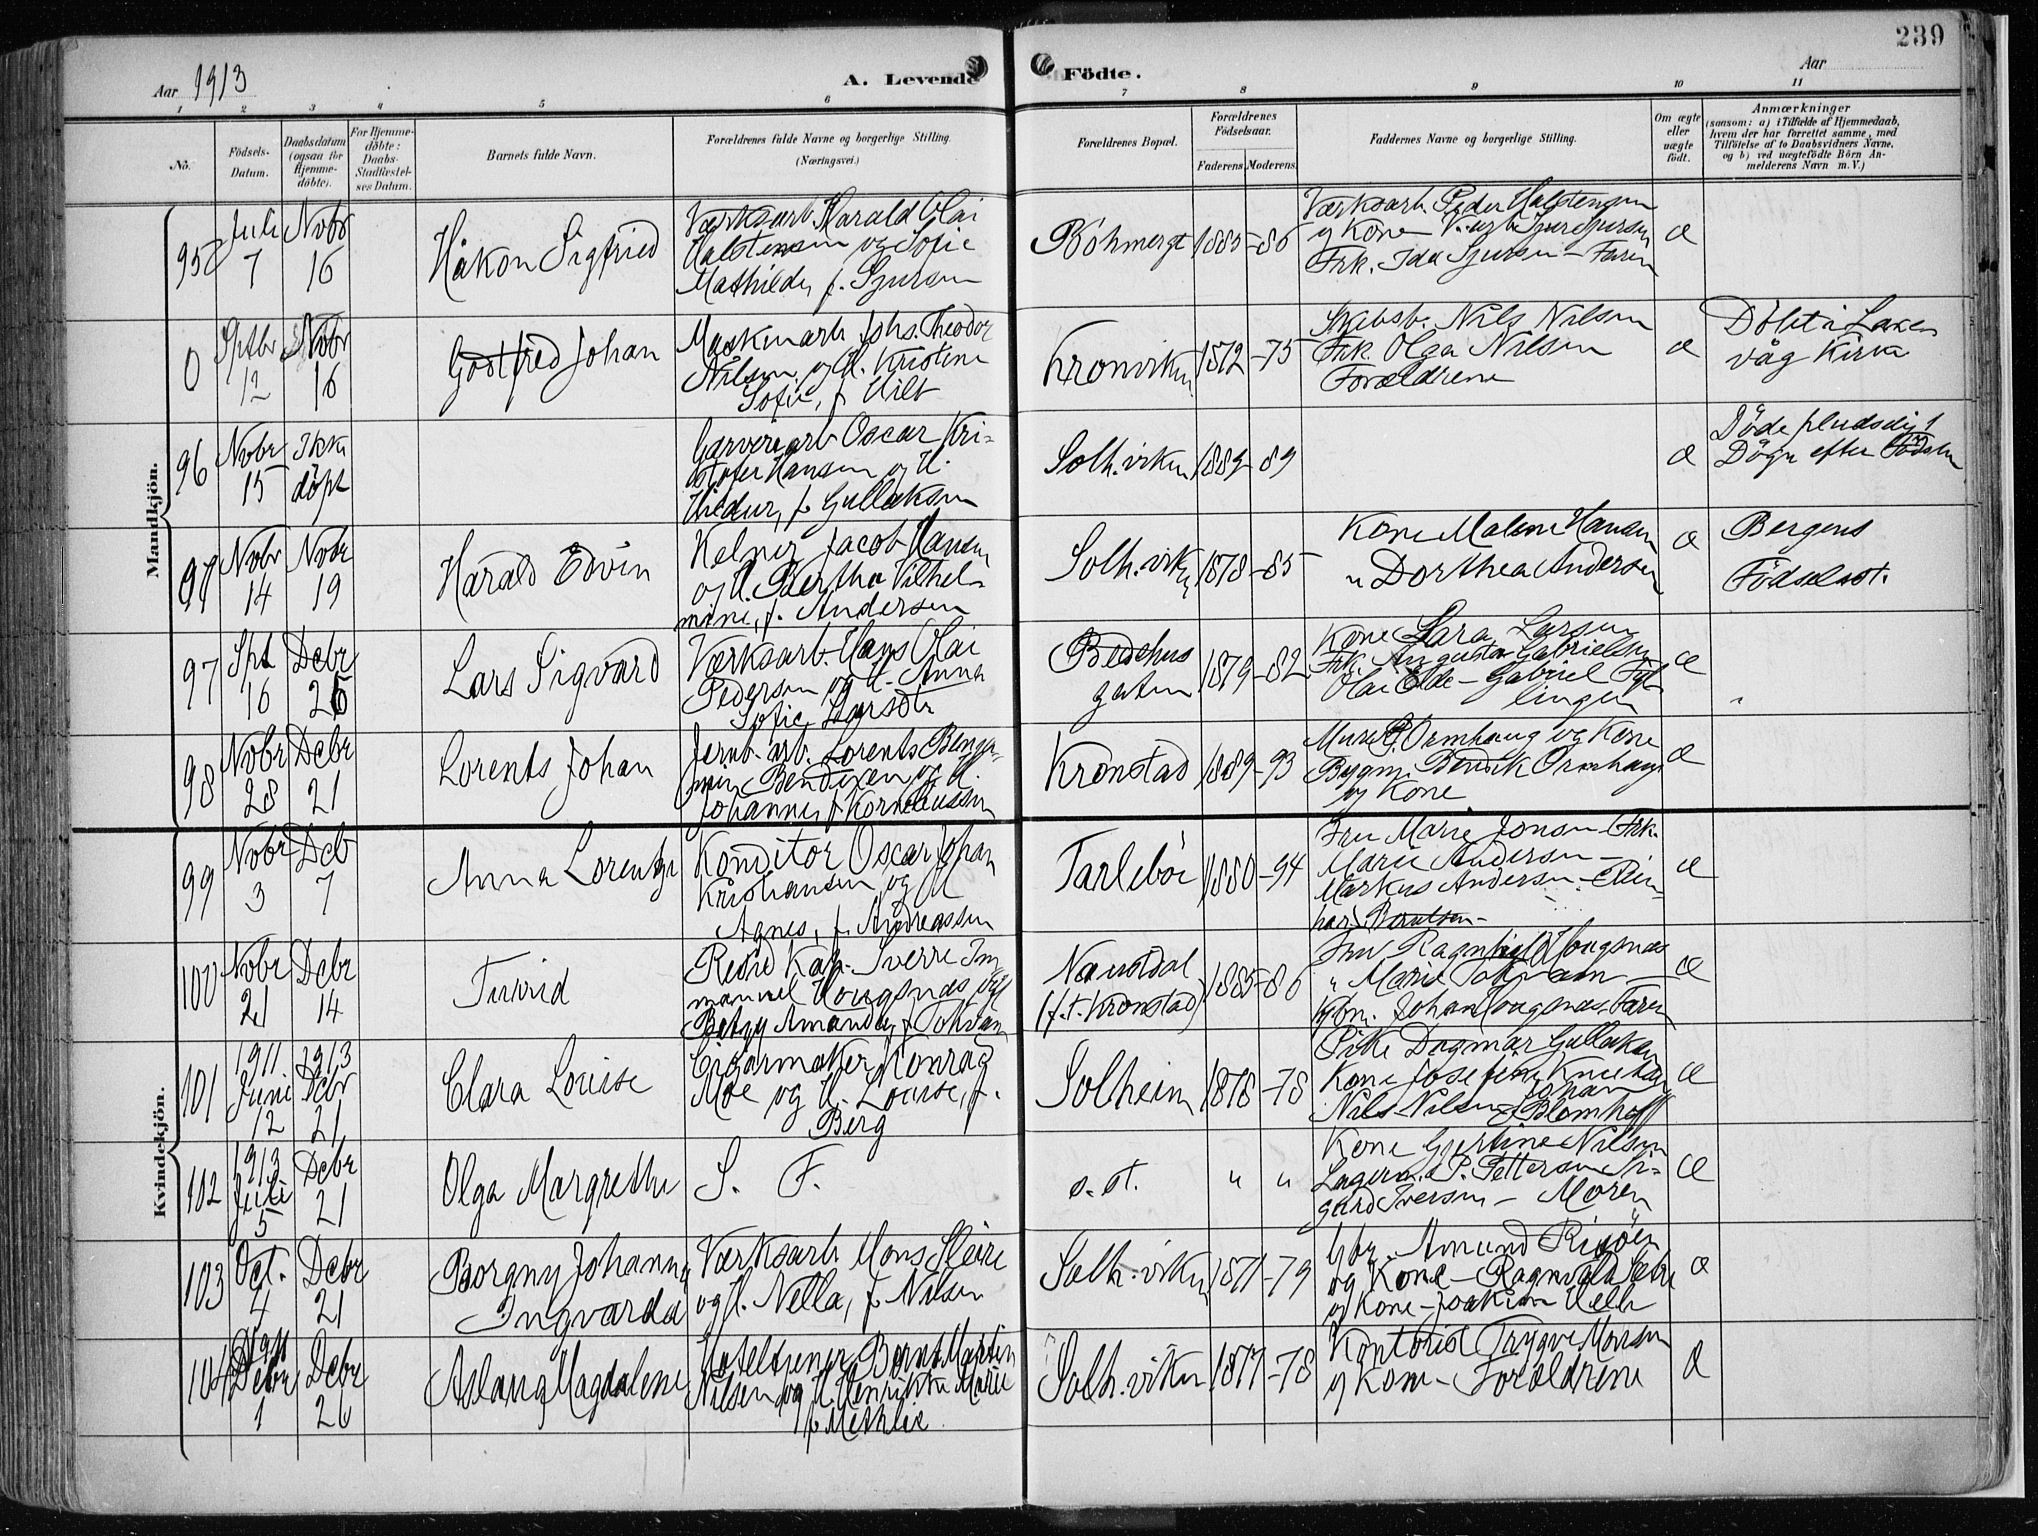 239
Aar 1913
A. Levende Födte.
Aar
1 2 3 4 5 6 7 8 9 10 11
No.
Födsels-
Datum.
Daabsdatum
(ogsaa for
Hjemme-
döbte).
For Hjemme-
döbte:
Daabs-
Stadfæstel-
ses Datum.
Barnets fulde Navn.
Forældrenes fulde Navne og borgerlige Stilling.
(Næringsvei.)
Forældrenes Bopæl.
Forældrenes
Födselsaar.
Faderens. Moderens.
Faddernes Navne og borgerlige Stilling.
Om ægte
eller
uægte
födt.
Anmærkninger
(saasom: a) i Tilfælde af Hjemmedaab,
hvem der har forrettet samme, med
Tilföielse af to Daabsvidners Navne,
og b) ved uægtefödte Börn An-
melderens Navn m. V.)
Mandkjön.
Juli
7
Nobr
16
Håkon Sigfried
Værksarb. Harald Olai
Halstensen og Sofie
Mathilde, f. Sjursen
1885-86
Værksarb. Peder Halstensen
og Kone
Frk. Ida Sjursen - Faren
æ
0
Sptbr
12
Nobr
16
Godtfred Johan
Maskinarb. Johs. Theodor
Nilsen og H. Kristine
Sofie, f.
Kronviken
1872-75
Nils Nilsen
Frk. Olga Nilsen
Forældrene
æ
Döbt i Laxe
våg Kirke
96
Nobr
15
Ikke
döpt
Garveriarb Oscar Kri-
stofer Hansen og H.
Hildur, f. Gullaksen
Solh.viken
1889-89
æ
Döde pludselig 1
Dögn efter Födslen
97
Nobr
14
Nobr
19
Harald Edvin
Kelner Jacob Hansen
og H. Bertha Vilhel-
mine, f. Andersen
Solh.viken
1878-85
Kone Malene Hansen
" Dorthea Andersen
æ
Bergens
Födselsst.
97
Spt
16
Debr
26
Lars Sigvard
Værksarb. Hans Olai
Pedersen og H. Anna
Sofie Larsdtr
Bedehus
gaten
1879-82
Kone Sara Larsen
Frk. Augusta Gabrielsen
Olai Eide - Gabriel
lingen
æ
"
98
Nobr
28
Debr
21
Lorents Johan
Jernb. arb. Lorents Benja-
min Bendixen og H.
Johanne, f. Korneliussen
Kronstad
1889-93
Murer P. Ormhaug og Kone
Bygm. Bendik Ormhaug
og Kone
æ
Kvindekjön.
99
Nobr
3
Deb
7
Anna Lorentze
Konditor Oscar Johan
Kristiansen og H
Agnes, f. Andreassen
Tarlebö
1880-94
Fru Marie Jonsen Frk.
Marie Andersen -
Markus Andersen - Rein-
hard Berntsen -
æ
100
Nobr
21
Debr
14
Turid
Resid Kap. Sverre Im
manuel Hougsnæs og H
Betzy Amanda, f. Tokvam
Naustdal
(f.t. Kronstad)
1885-86
Fru Ragnhild Hougsnæs
" Marie Tokvam -
Kjbm. Johan Hougsnæs - Faren
æ
101
1911
Juni
12
1913
Debr
21
Clara Louise
Cigarmaker Konrad
Moe og H. Louise, f.
Berg
Solheim
1878-78
Pike Dagmar Gullaksen
Kone Josefine Knudsen
Nils Nilsen - Johan
Blomhoff
æ
102
1913
Juli
5
Debr
21
Olga Margrethe
S. F.
s. st.
" "
Kone Gjertine Nilsen
Lagerm. P. Pettersen Si-
gurd Iversen - Moren
æ
103
Oct.
4
Debr
21
Borgny Johanne
Ingvarda
Værksarb. Mons Steine
og H. Nella, f. Nilsen
Solh.viken
1871-79
Gbr. Amund Risöen
og Kone - Ragnvald Sætre
og Kone - Joakim Helle
æ
104
1911
Debr
1
Debr
26
Aslaug Magdalene
Hoteltjener Bernt Martin
Nilsen og H. Henrikke Marie
f. Methlie
Solh.viken
1877-78
Kontorist Trygve Monsen
og Kone - Forældrene
æ